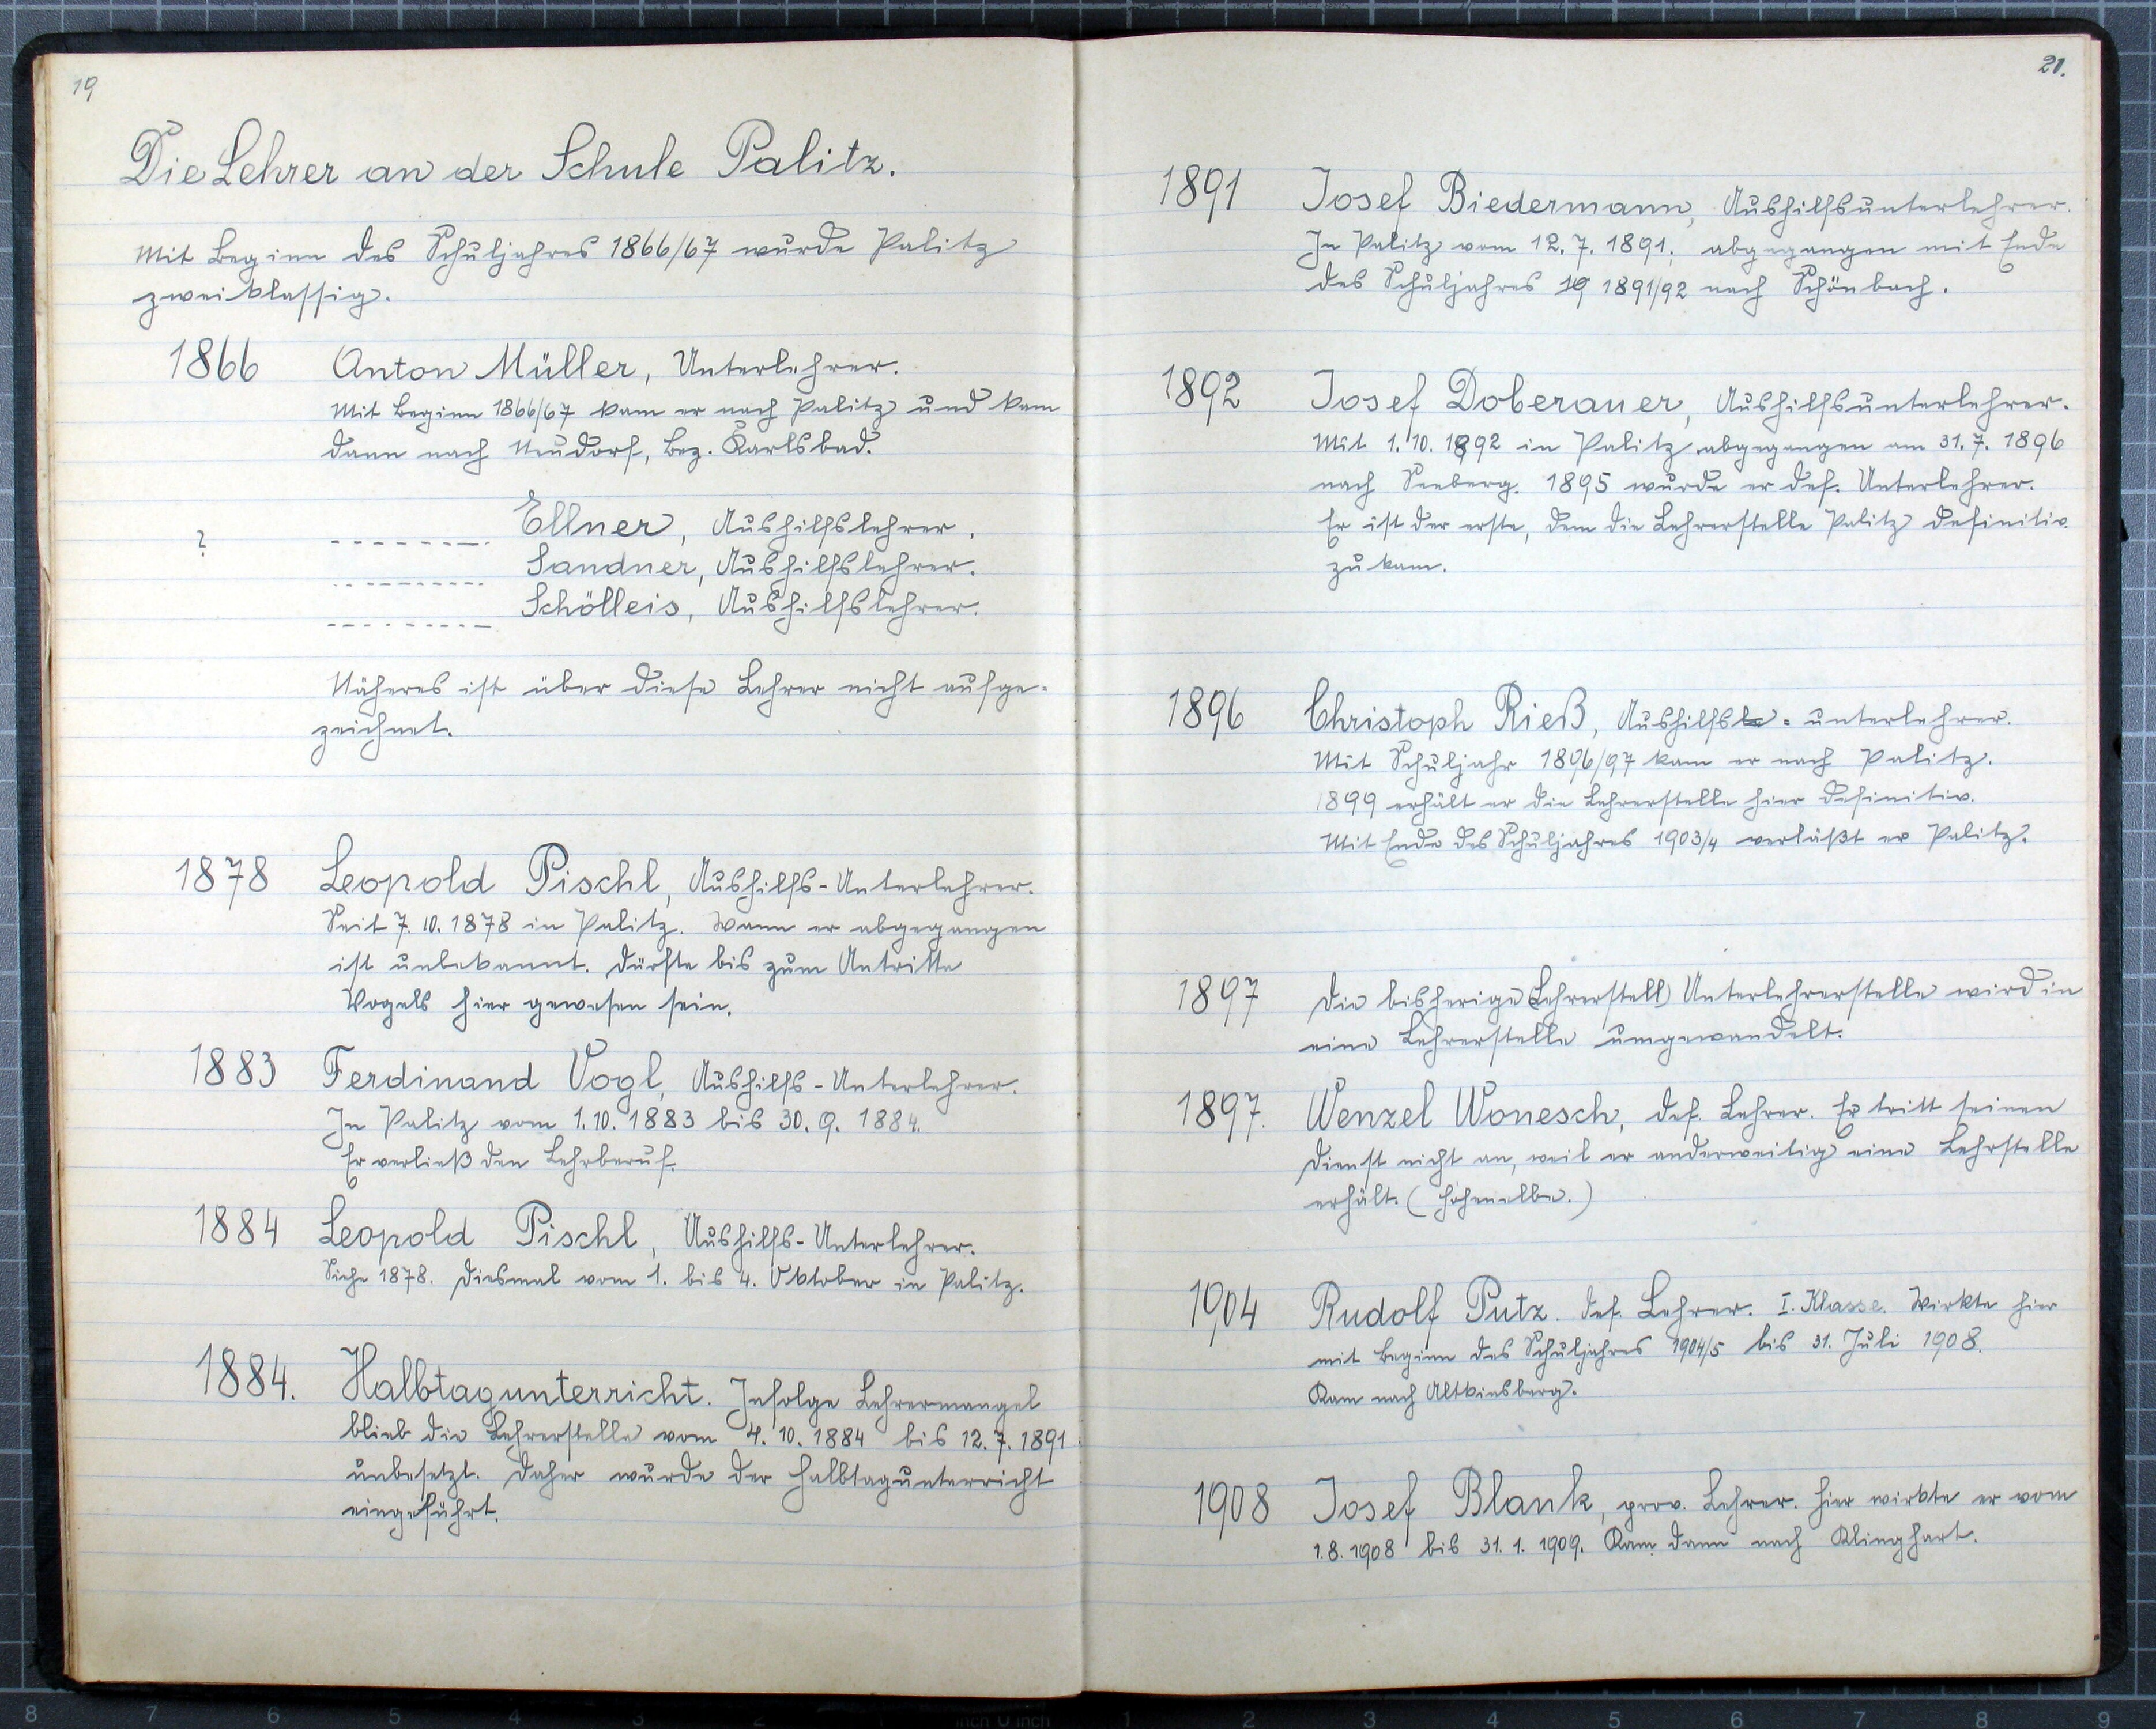 19
Die Lehrer an der Schule Palitz.
Mit Beginn des Schuljahres 1866/67 wurde Palitz
zweiklassig.
1866 Anton Müller, Unterlehrer.
Mit Beginn 1866/67 kam er nach Palitz und kam
dann nach Neudorf, Bez. Karlsbad.
? Ellner, Aushilfslehrer.
Sandner, Aushilfslehrer.
Schölleis, Aushilfslehrer.
Näheres ist über diese Lehrer nicht aufge-
zeichnet.
1878 Leopold Pischl, Aushilfs-Unterlehrer.
Seit 7.10.1878 in Palitz. Wann er abgegangen
ist unbekannt. Dürfte bis zum Antritte
Vogels hier gewesen sein.
1883 Ferdinand Vogl, Aushilfs-Unterlehrer.
In Palitz vom 1.10.1883 bis 30.9.1884.
Er verließ den Lehrberuf.
1884 Leopold Pischl, Aushilfs-Unterlehrer.
Siehe 1878. Diesmal vom 1. bis 4. Oktober in Palitz.
1884. Halbtagunterricht. Infolge Lehrermangel
blieb die Lehrerstelle vom 4.10.1884 bis 12.7.1891
unbesetzt. Daher wurde der Halbtagunterricht
eingeführt.
21.
1891 Josef Biedermann, Aushilfsunterlehrer.
In Palitz vom 12.7.1891; abgegangen mit Ende
des Schuljahres 19 1891/92 nach Schönbach.
1892 Josef Doberauer, Aushilfsunterlehrer.
Mit 1.10.1892 in Palitz, abgegangen am 31.7.1896
nach Seeberg. 1895 wurde er def. Unterlehrer.
Er ist der erste, dem die Lehrerstelle Palitz definitiv
zukam.
1896 Christoph Rieß, Aushilfsle-unterlehrer.
Mit Schuljahr 1896/97 kam er nach Palitz.
1899 erhält er die Lehrerstelle hier definitiv.
Mit Ende des Schuljahres 1903/4 verläßt er Palitz.
1897 Die bisherige (Lehrerstell) Unterlehrerstelle wird in
eine Lehrerstelle umgewandelt.
1897. Wenzel Wonesch, def. Lehrer. Er tritt seinen
Dienst nicht an, weil er anderweitig eine Lehrstelle
erhält. (Hohenelbe.)
1904 Rudolf Putz. def. Lehrer. I. Klasse. Wirkte hier
mit Beginn des Schuljahres 1904/5 bis 31. Juli 1908.
Kam nach Altkinsberg.
1908 Josef Blank, prov. Lehrer. Hier wirkte er vom
1.8.1908 bis 31.1.1909. Kam dann nach Klinghart.
8 7 6 5 4 3 2 1 inch 0 inch 1 2 3 4 5 6 7 8 9